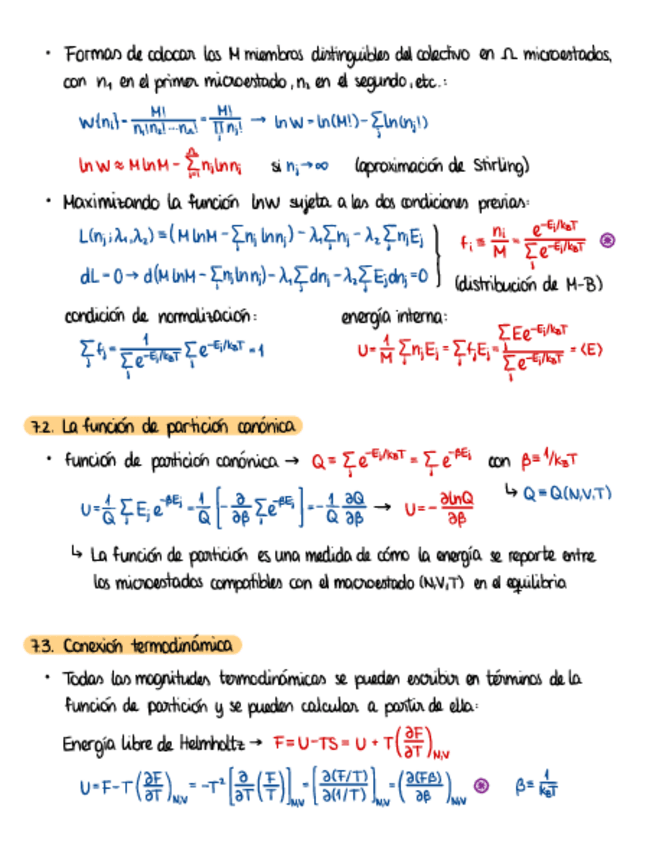 · Formas de colocar los M miembros distinguibles del colectivo en Ω microestados,
con n₁ en el primer microestado, n₂ en el segundo, etc.:
W{nᵢ} = M! / (n₁! n₂! ··· n_Ω!) = M! / ∏ nⱼ! → ln W = ln(M!) − Σⱼ ln(nⱼ!)
ln W ≈ M ln M − Σⱼ₌₁^Ω nⱼ ln nⱼ si nⱼ → ∞ (aproximación de Stirling)
· Maximizando la función lnW sujeta a las dos condiciones previas:
L(nⱼ; λ₁, λ₂) ≡ (M ln M − Σⱼ nⱼ ln nⱼ) − λ₁ Σⱼ nⱼ − λ₂ Σⱼ nⱼEⱼ
dL = 0 → d(M ln M − Σⱼ nⱼ ln nⱼ) − λ₁ Σⱼ dnⱼ − λ₂ Σⱼ Eⱼ dnⱼ = 0
fᵢ ≡ nᵢ/M = e^(−Eᵢ/k_BT) / Σⱼ e^(−Eⱼ/k_BT) ⊛
(distribución de M-B)
condición de normalización: energía interna:
Σⱼ fⱼ = 1 / (Σⱼ e^(−Eⱼ/k_BT)) Σⱼ e^(−Eⱼ/k_BT) = 1 U = 1/M Σⱼ nⱼEⱼ = Σⱼ fⱼEⱼ = Σⱼ E e^(−Eⱼ/k_BT) / Σⱼ e^(−Eⱼ/k_BT) = ⟨E⟩
7.2. La función de partición canónica
· función de partición canónica → Q = Σⱼ e^(−Eⱼ/k_BT) = Σⱼ e^(−βEⱼ) con β ≡ 1/k_BT
U = 1/Q Σⱼ Eⱼ e^(−βEⱼ) = 1/Q [−∂/∂β Σⱼ e^(−βEⱼ)] = −1/Q ∂Q/∂β → U = −∂lnQ/∂β ↳ Q = Q(N,V,T)
↳ La función de partición es una medida de cómo la energía se reporte entre
los microestados compatibles con el macroestado (N,V,T) en el equilibrio
7.3. Conexión termodinámica
· Todas las magnitudes termodinámicas se pueden escribir en términos de la
función de partición y se pueden calcular a partir de ella:
Energía libre de Helmholtz → F = U − TS = U + T(∂F/∂T)_N,V
U = F − T(∂F/∂T)_N,V = −T² [∂/∂T (F/T)]_N,V = [∂(F/T)/∂(1/T)]_N,V = (∂(Fβ)/∂β)_N,V ⊛ β ≡ 1/k_BT